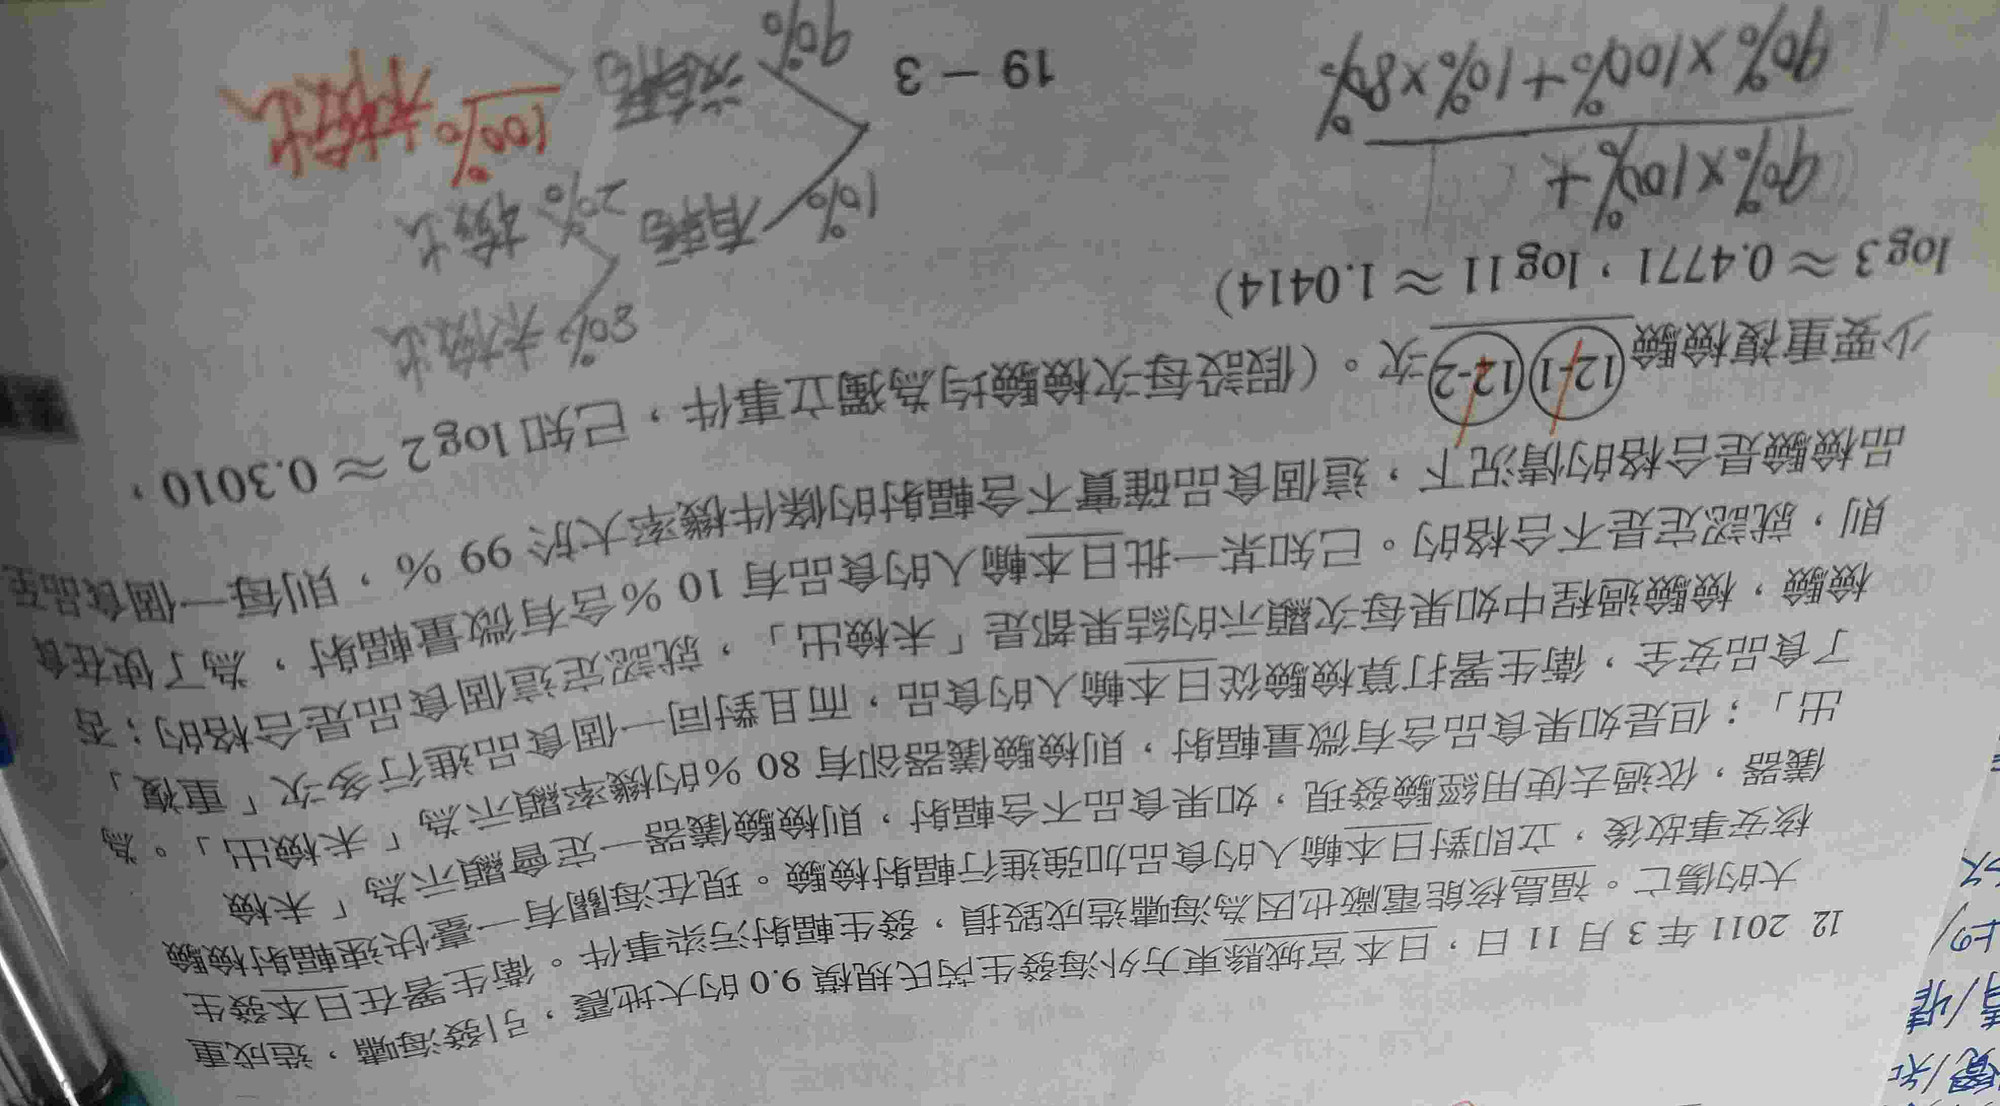 12 2011 年 3 月 11 日，日本宮城縣東方外海發生芮氏規模 9.0 的大地震，引發海嘯，造成重
大的傷亡。福島核能電廠也因為海嘯造成毀損，發生輻射污染事件。衛生署在日本發生
核安事故後，立即對日本輸入的食品加強進行輻射檢驗。現在海關有一臺快速輻射檢驗
儀器，依過去使用經驗發現，如果食品不含輻射，則檢驗儀器一定會顯示為「未檢
出」；但是如果食品含有微量輻射，則檢驗儀器卻有 80 %的機率顯示為「未檢出」。為
了食品安全，衛生署打算檢驗從日本輸入的食品，而且對同一個食品進行多次「重複」
檢驗，檢驗過程中如果每次顯示的結果都是「未檢出」，就認定這個食品是合格的；否
則，就認定是不合格的。已知某一批日本輸入的食品有 10 %含有微量輻射，為了使在食
品檢驗是合格的情況下，這個食品確實不含輻射的條件機率大於 99 %，則每一個食品至
少要重複檢驗 12-1 12-2 次。（假設每次檢驗均為獨立事件，已知 log 2 ≈ 0.3010，
log 3 ≈ 0.4771，log 11 ≈ 1.0414）
90% × 100% +
90% × 100% + 10% × 80%
10% 有輻
80% 未檢出
20% 檢出
90% 沒有輻
100% 未檢出
19 − 3